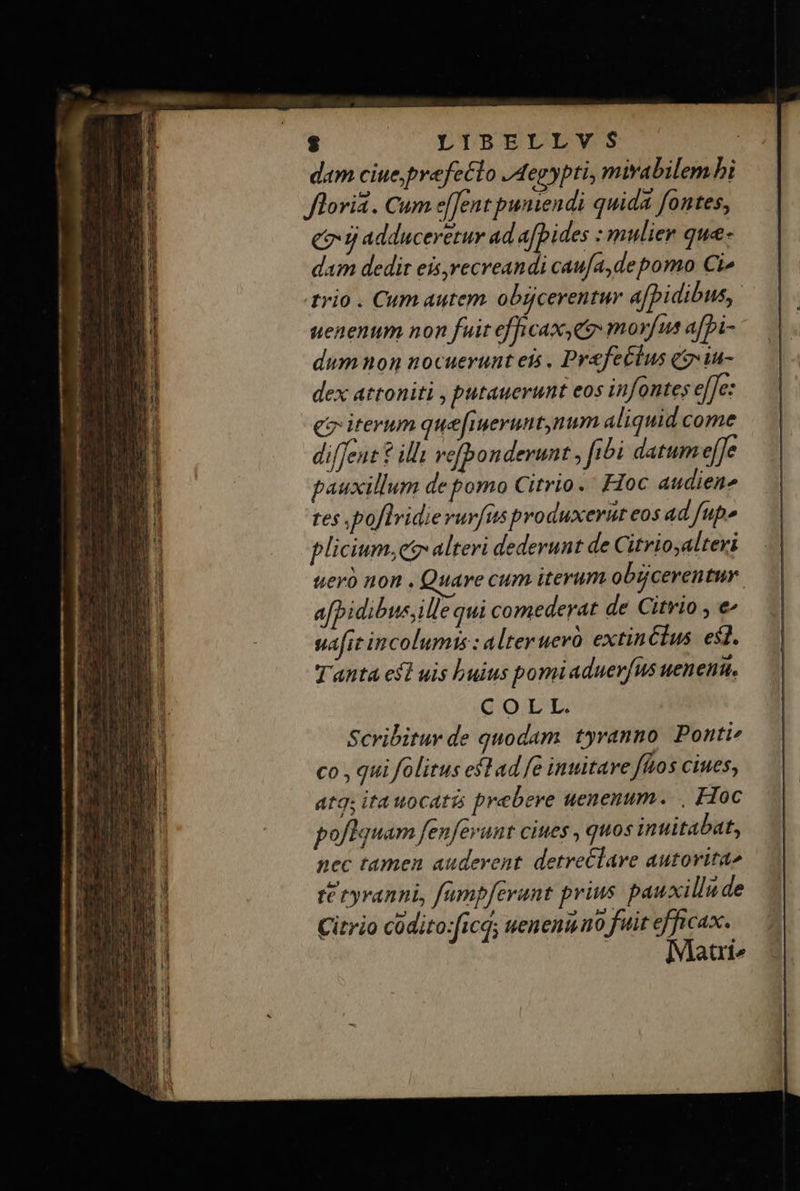 8 LIBELLVS
dam ciue, præfecto Aegypti, mirabilem hi
ſtoriā. Cum eſſent puniendi quidā ſontes,
& ij adducerētur ad aſpides : mulier quæ-
dam dedit eis, recreandi cauſa, de pomo Ci-
trio. Cum autem obijcerentur aſpidibus,
uenenum non fuit efficax, & morſus aſpi-
dum non nocuerunt eis. Præfectus & iu-
dex attoniti, putauerunt eos inſontes eſſe:
& iterum quæſiuerunt, num aliquid come
diſſent? illi reſponderunt, ſibi datum eſſe
pauxillum de pomo Citrio. Hoc audien-
tes, poſtridie rurſus produxerūt eos ad ſup-
plicium, & alteri dederunt de Citrio, alteri
uerò non. Quare cum iterum obijcerentur
aſpidibus, ille qui comederat de Citrio, e-
uaſit incolumis: alter uerò extinctus eſt.
Tanta eſt uis huius pomi aduerſus uenenū.
COLL.
Scribitur de quodam tyranno Ponti-
co, qui ſolitus eſt ad ſe inuitare ſuos ciues,
atq; ita uocatis præbere uenenum. Hoc
poſtquam ſenſerunt ciues, quos inuitabat,
nec tamen auderent detrectare autorita-
tē tyranni, ſumpſerunt prius pauxillū de
Citrio cōdito: ſicq; uenenū nō fuit efficax.
Matri-